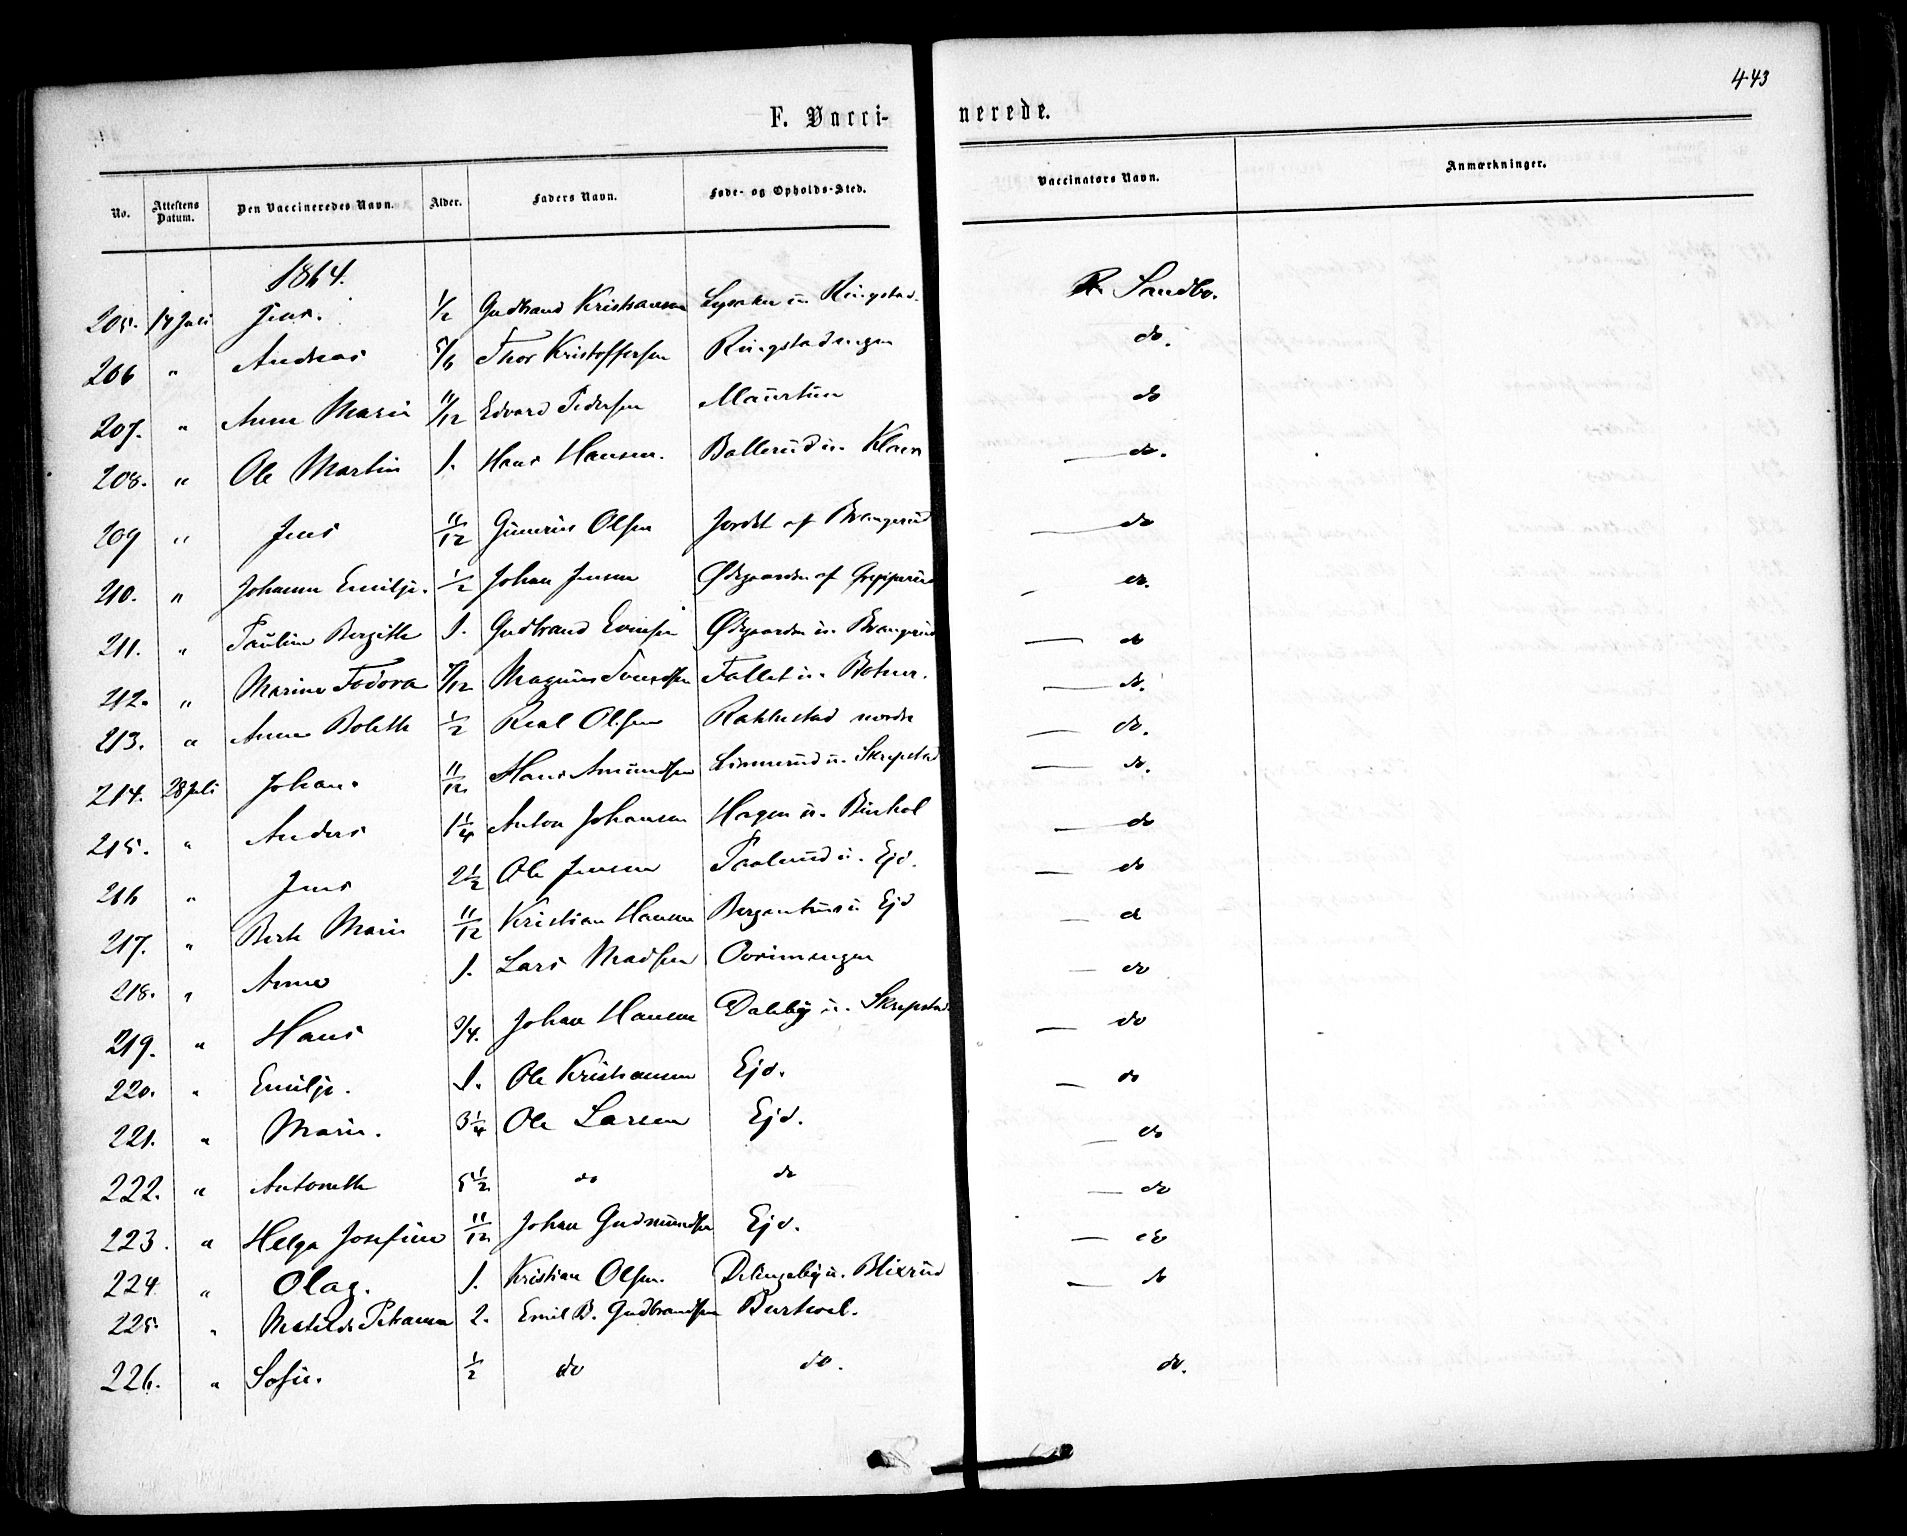 443
F. Vacci- nerede.
No. Attestens Datum. Den Vaccineredes Navn. Alder. Faders Navn. Føde- og Opholds-Sted. Vaccinators Navn. Anmærkninger.
1864.
205. 14 Juli Jens. 1/2 Gudbrand Kristiansen Lysaker u. Ringstad. R. Sandbo.
206 " Andreas 5/6 Thor Kristoffersen Ringstadengen do.
207. " Anne Marie 11/12 Edvard Pedersen Maurtun do
208. " Ole Martin 1. Hans Hansen. Ballerud u. Klaen do.
209 " Jens 11/12 Gunerius Olsen Jordet af Brangerud do
210. " Johanne Emilje. 1/2 Johan Jensen Ødegaarden af Grepperud do.
211. " Pauline Bergitte 1. Gudbrand Evensen Ødegaarden u. Brangerud do
212. " Marine Fodora /12 Magnus Svendsen Fallet u. Botner. do.
213. " Anne Bolette 1/2 Real Olsen Raklestad nordre do.
214. 28 Juli Johan. 11/12 Hans Amundsen Linnerud u. Skrepstad do.
215. " Anders 1 1/4 Anton Johansen Hagen u. Birkol do
216 " Jens 2 1/2 Ole Jensen Paalerud u. Ejd. do
217. " Berte Marie 11/12 Kristian Hansen Bergentun u Ejd do
218. " Anne 1. Lars Madsen do
219. " Hans 3/4. Johan Hansen Daleby u. Skrepstad. do
220. " Emilje. 1. Ole Kristiansen Ejd. do
221. " Marie. 3 1/4 Ole Larsen Ejd. do
222. " Antonette 5 1/2 do do do
223. " Helga Josefine 11/12 Johan Gudmundsen Ejd. do
224. " Olaf. 1. Kristian Olsen. Delingsby u. Blixrud do
225. " Matilde 2. Emil B. Gudbrandsen Burhol.
226. " Sofie. 1/2 do do. do.